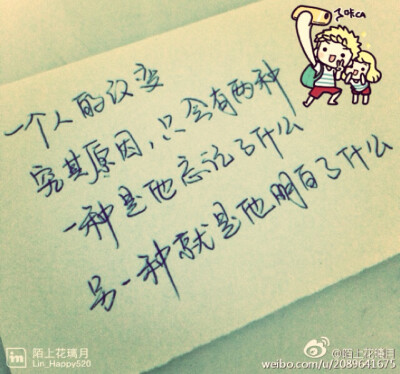 一个人的改变
穷其原因，只会有两种
一种是他忘记了什么
另一种就是他明白了什么
in 陌上花璃月
Lin_Happy520
@陌上花璃月
weibo.com/u/2089641675